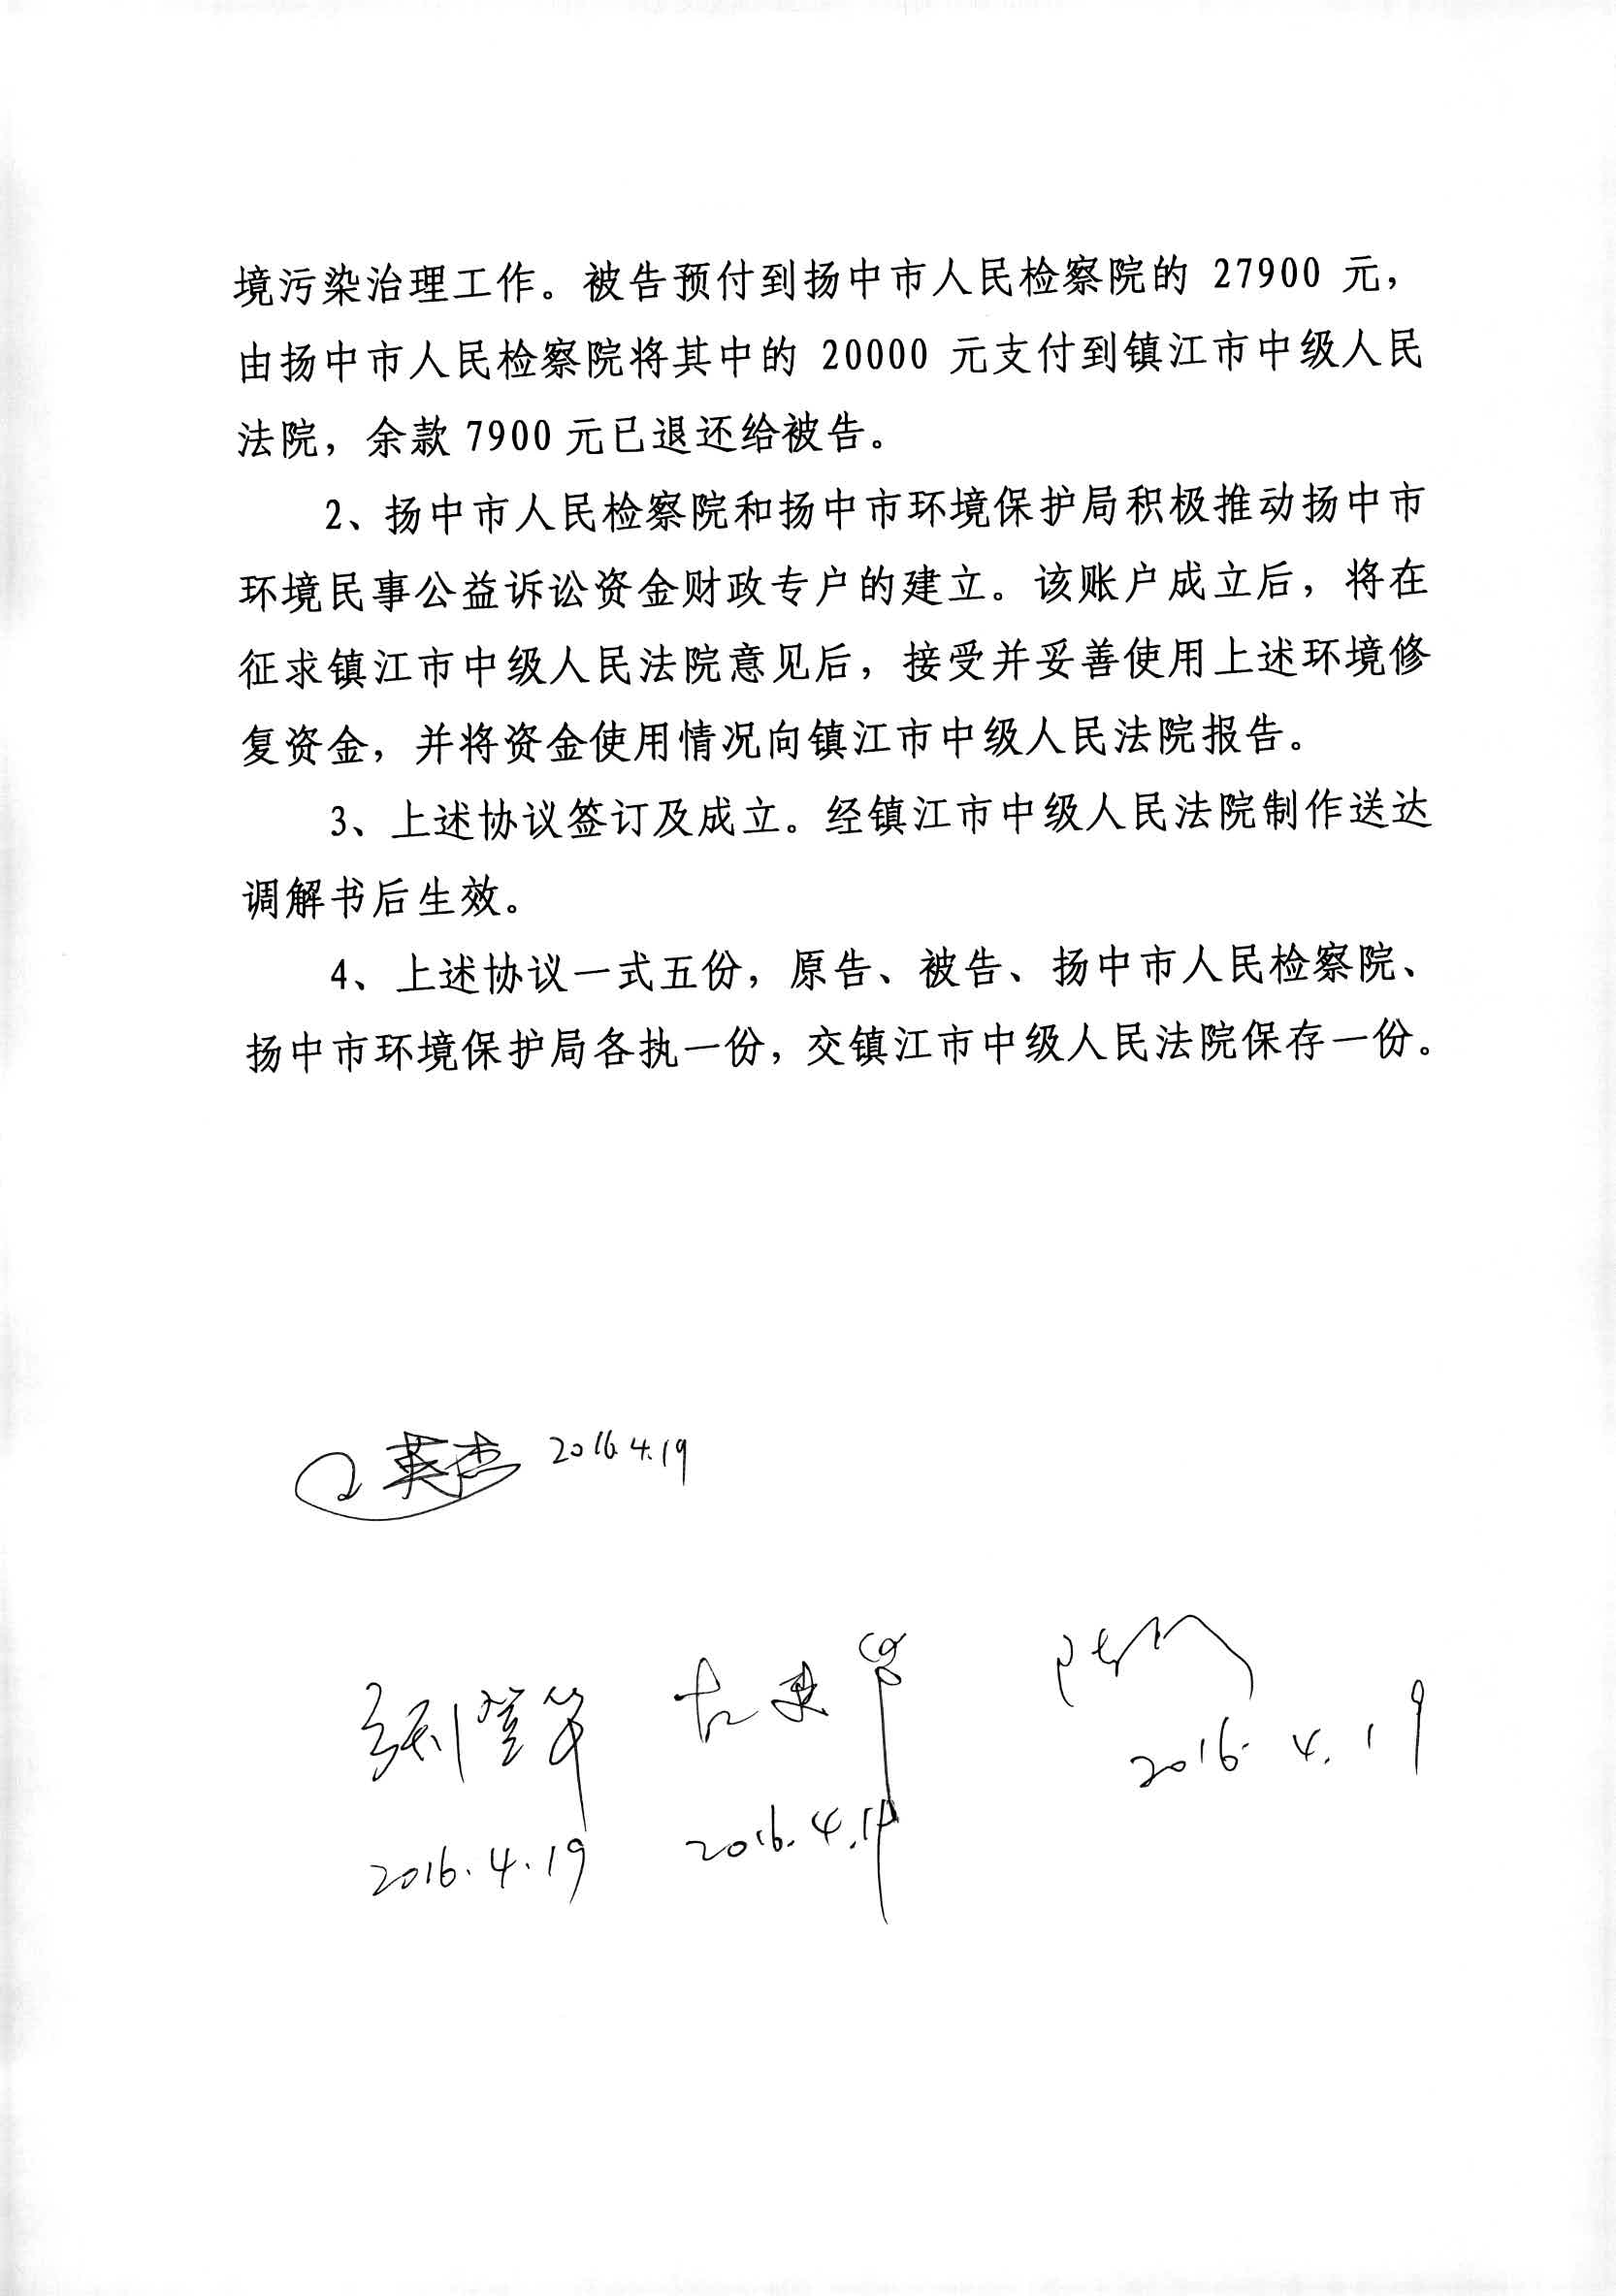 境污染治理工作。被告预付到扬中市人民检察院的 27900 元，
由扬中市人民检察院将其中的 20000 元支付到镇江市中级人民
法院，余款 7900 元已退还给被告。
2、扬中市人民检察院和扬中市环境保护局积极推动扬中市
环境民事公益诉讼资金财政专户的建立。该账户成立后，将在
征求镇江市中级人民法院意见后，接受并妥善使用上述环境修
复资金，并将资金使用情况向镇江市中级人民法院报告。
3、上述协议签订及成立。经镇江市中级人民法院制作送达
调解书后生效。
4、上述协议一式五份，原告、被告、扬中市人民检察院、
扬中市环境保护局各执一份，交镇江市中级人民法院保存一份。
英杰 2016.4.19
2016.4.19
2016.4.19
2016.4.19